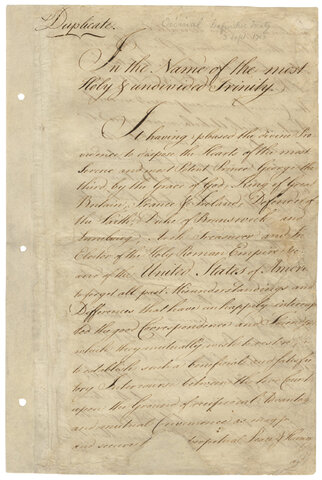 Duplicate.
Original Definitive Treaty
In the Name of the most
Holy & undivided Trinity.
It having pleased the divine Pro
vidence to dispose the Hearts of the most
Serene and most Potent Prince George the
third, by the Grace of God, King of Great
Britain, France & Ireland, Defender of
the Faith, Duke of Brunswick and
Lunebourg, Arch Treasurer, and
Elector of the Holy Roman Empire &c
and of the United States of America
to forget all past Misunderstandings and
Differences that have unhappily interrup
ted the good Correspondence and Friendship
which they mutually wish to restore;
to establish such a beneficial and satisfac
tory Intercourse between the two Countries
upon the Ground of reciprocal Advantages
and mutual Convenience as may
and secure perpetual Peace & Harmony